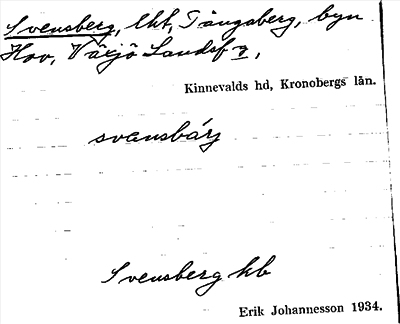 Svensberg, lht, Tångsberg, byn
Hov, Växjö Landsf 7,
Kinnevalds hd, Kronobergs län.
svensbärj
Svensberg kb
Erik Johannesson 1934.